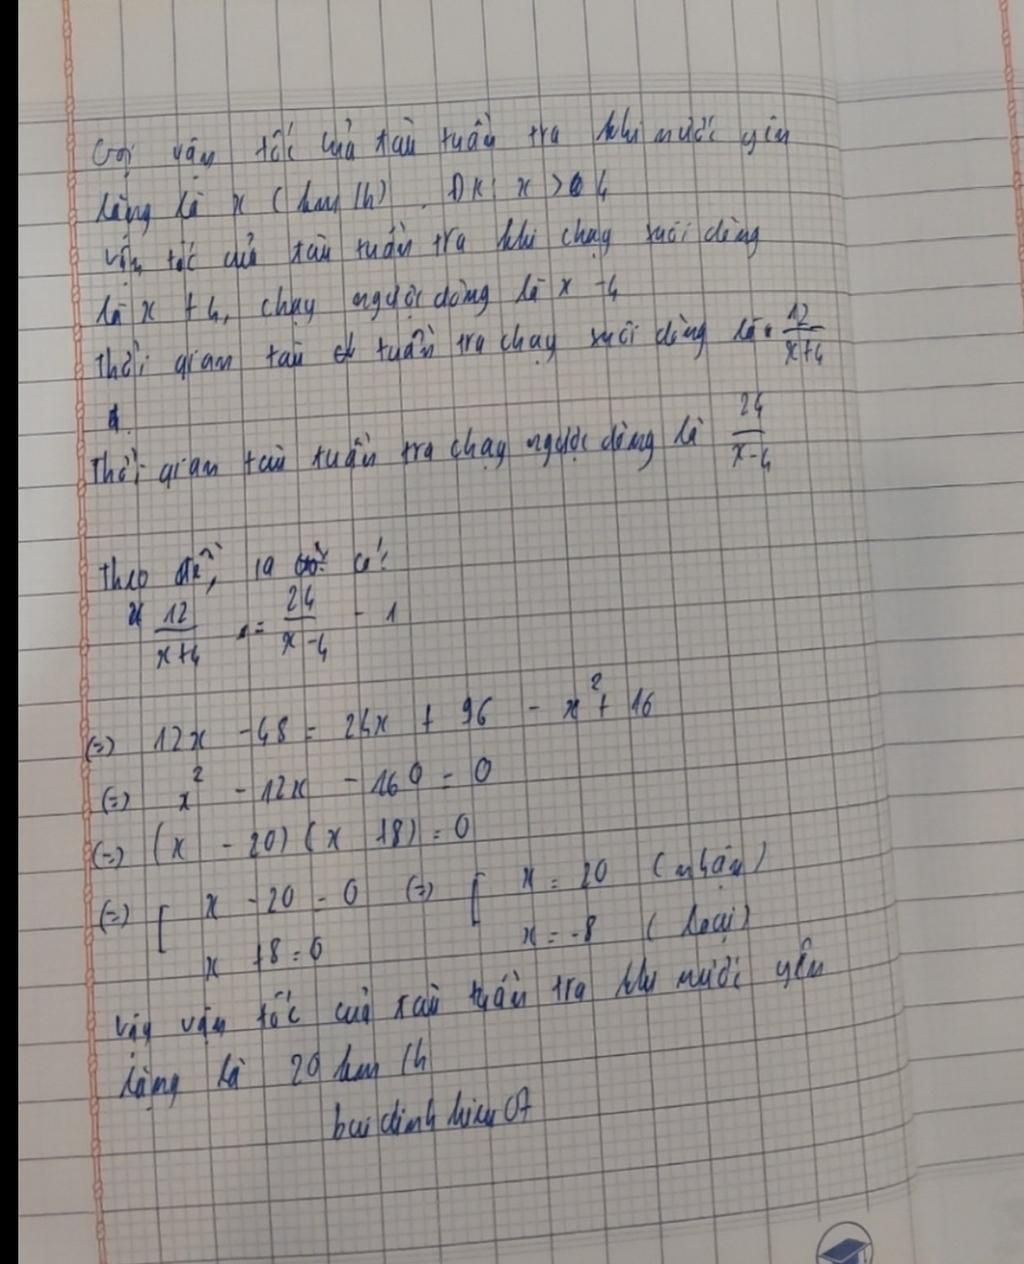 Gọi vận tốc của tàu tuần tra khi nước yên
lặng là x (km/h). ĐK: x > 4
vận tốc của tàu tuần tra khi chạy xuôi dòng
là x + 4, chạy ngược dòng là x - 4
Thời gian tàu tuần tra chạy xuôi dòng là: 12/(x+4)
Thời gian tàu tuần tra chạy ngược dòng là 24/(x-4)
Theo đề, ta có:
12/(x+4) = 24/(x-4) - 1
(=) 12x - 48 = 24x + 96 - x² + 16
(=) x² - 12x - 160 = 0
(=) (x - 20) (x +8) = 0
(=) [ x - 20 = 0 (=) [ x = 20 (nhận)
x +8 = 0 x = -8 (loại)
vậy vận tốc của tàu tuần tra khi nước yên
lặng là 20 km/h